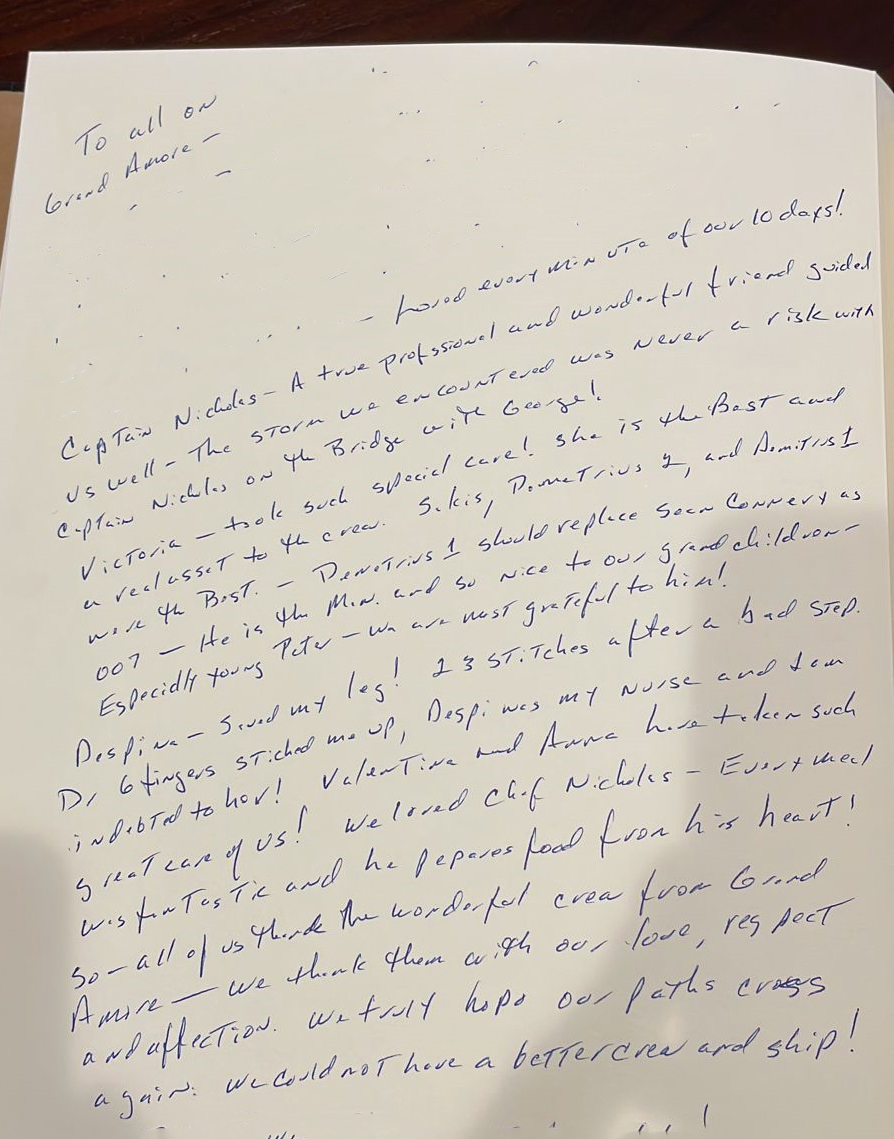 To all on
Grand Amore -
- Loved every minute of our 10 days!
Captain Nicholas - A true profssional and wonderful friend guided
us well - The storm we encountered was never a risk with
Captain Nicholas on the Bridge with George!
Victoria - took such special care! She is the Best and
a real asset to the crew. Sakis, Demetrius 2, and Demitrus 1
were the Best. - Demetrius 1 should replace Sean Connery as
007 - He is the Man. and so nice to our grandchildren -
Especially young Peter - we are most grateful to him!
Despina - Saved my leg! 23 stitches after a bad step.
Dr 6 fingers stiched me up, Despi was my nurse and I am
indebted to her! Valentina and Anna have taken such
great care of us! We loved Chef Nicholas - Every meal
was fantastic and he pepares food from his heart!
So - all of us thank the wonderful crew from Grand
Amore - We thank them with our love, respect
and affection. We truly hope our paths cross
again. We could not have a better crew and ship!